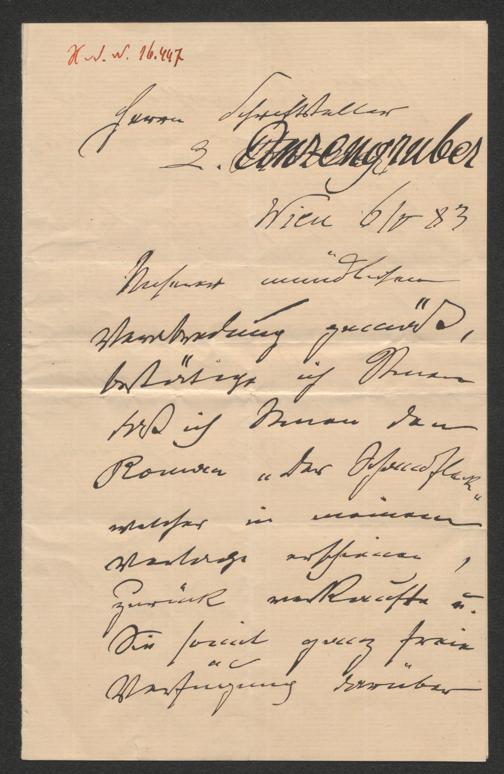 H. I. N. 16.447
Herrn Schriftsteller
L. Anzengruber
Wien 6/V 83
Unserer mündlichen
Verabredung gemäß,
bestätige ich Ihnen
daß ich Ihnen den
Roman „Der Schandfleck“
welcher in meinem
Verlage erschienen,
zurück verkaufte u.
Sie somit ganz freie
Verfügung darüber